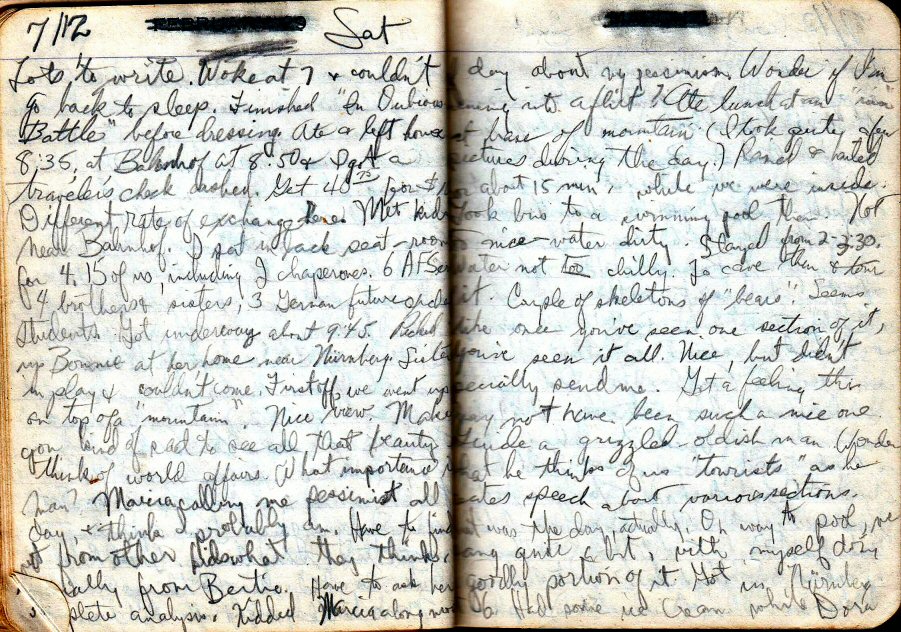 7/12 Sat
Lots to write. Woke at 7 & couldn't
go back to sleep. Finished "In Dubious
Battle" before dressing. Ate & left house
8:35, at Bahnhof at 8:50 & I got a
traveler's check cashed. Get 40 for
Different rate of exchange here. Met kids
near Bahnhof. I sat in back seat - room
for 4. 15 of us, including 2 chaperones. 6 AFSers
4 brothers & sisters, 3 German future
students. Got underway about 9:45. Picked
up Bonnie at her home near Nürnberg. Sister
in play & couldn't come. First off, we went up
on top of a "mountain". Nice view. Makes
you kind of sad to see all that beauty
think of world affairs. What importance
man? Marcia calling me pessimist all
day, & I think I probably am. Have to find
out from other kids what they think,
ially from Bertie. Have to ask her
plete analysis. Kidded Marcia along
day about my pessimism. Wonder if I'm
ening into a flirt? Ate lunch at an "inn"
at base of mountain. (I took quite a few
pictures during the day.) Rained & hailed
for about 15 min. while we were inside.
Took bus to a swimming pool then. Not
nice - water dirty. Stayed from 2-3:30.
water not too chilly. To cave then & tour
it. Couple of skeletons of "bears". Seems
like once you've seen one section of it,
you've seen it all. Nice, but didn't
specially send me. Got a feeling this
may not have been such a nice one.
Guide a grizzled oldish man. Wonder
what he thinks of us "tourists" as he
speech about various sections.
was the day, actually. On way to pool, we
sang quite a bit, with myself doing
goodly portion of it. Got in Nürnberg
6. Had some ice cream while Dora